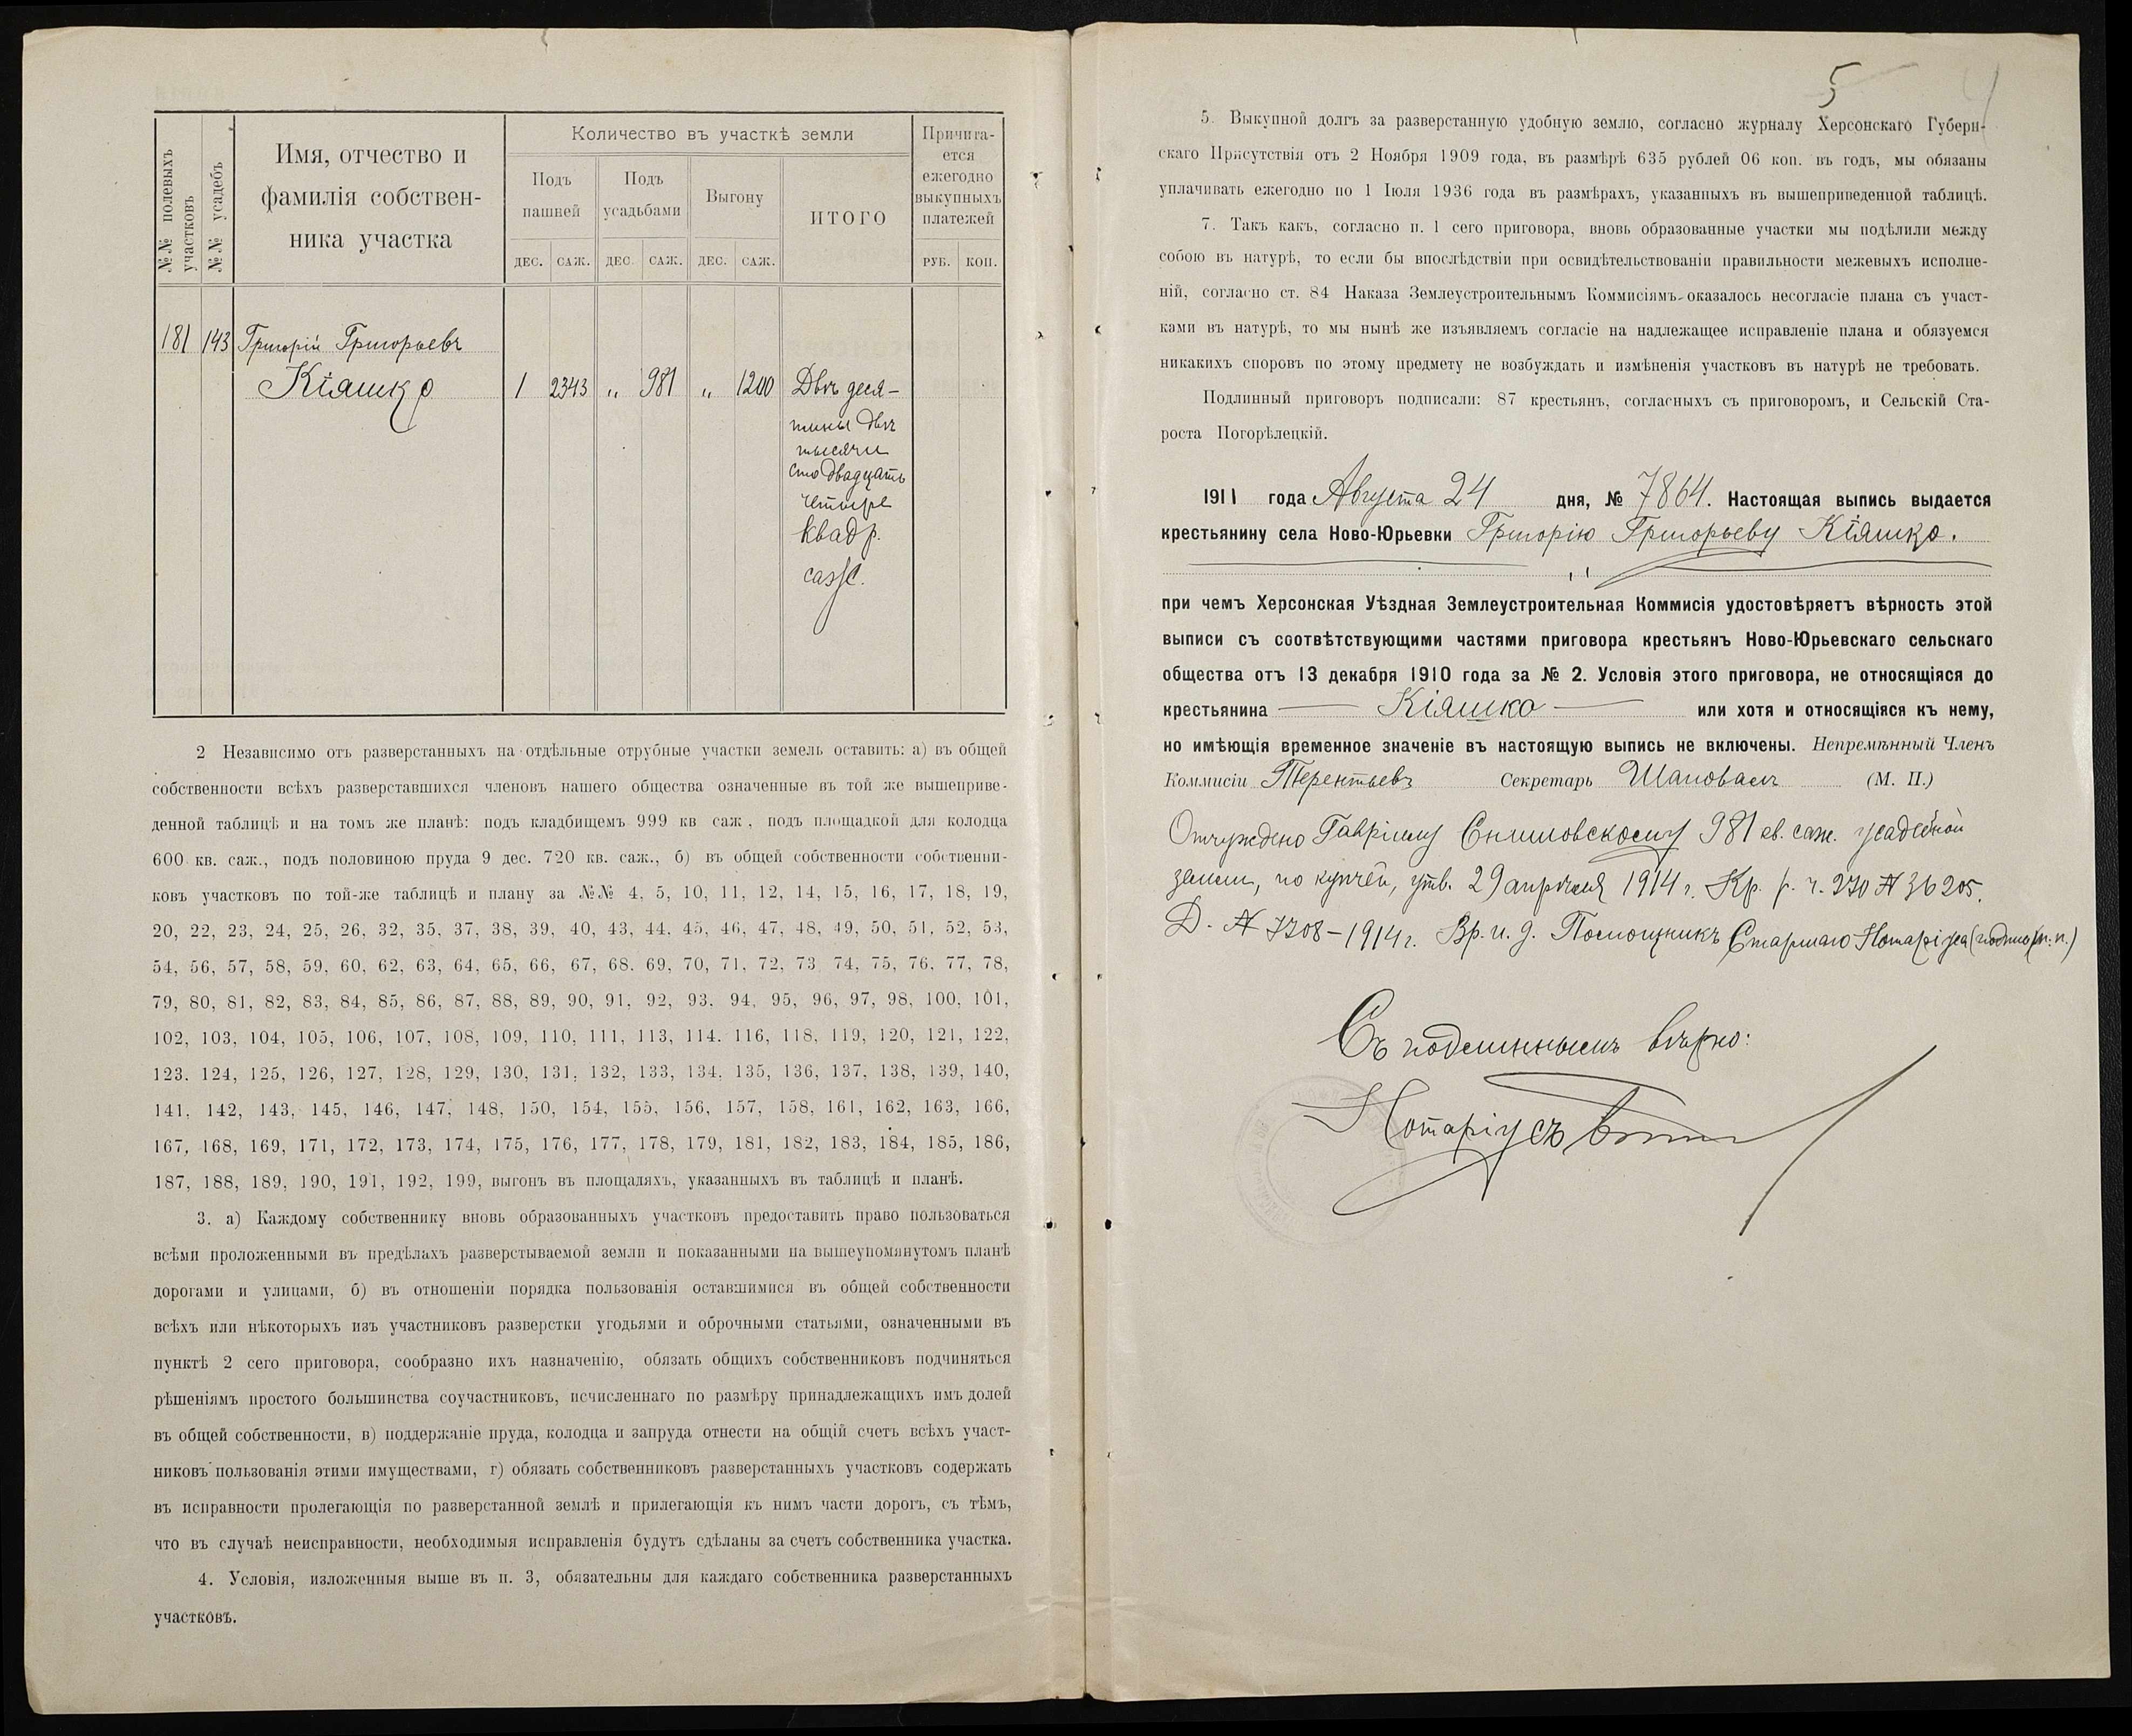 №№ полевыхъ участковъ
№№ усадебъ
Имя, отчество и
фамилія собствен-
ника участка
Количество въ участкѣ земли
Подъ
пашней
Подъ
усадьбами
Выгону
ИТОГО
Причита-
ется
ежегодно
выкупныхъ
платежей
ДЕС. САЖ. ДЕС. САЖ. ДЕС. САЖ. РУБ. КОП.
181 143 Григорій Григорьевъ
Кіяшко 1 2343 „ 981 „ 1200 Двѣ деся-
тины двѣ
тысячи
сто двадцать
четыре
квадр.
саж.
2 Независимо отъ разверстанныхъ на отдѣльные отрубные участки земель оставить: а) въ общей
собственности всѣхъ разверставшихся членовъ нашего общества означенные въ той же вышеприве-
денной таблицѣ и на томъ же планѣ: подъ кладбищемъ 999 кв саж, подъ площадкой для колодца
600 кв. саж., подъ половиною пруда 9 дес. 720 кв. саж., б) въ общей собственности собственни-
ковъ участковъ по той-же таблицѣ и плану за №№ 4, 5, 10, 11, 12, 14, 15, 16, 17, 18, 19,
20, 22, 23, 24, 25, 26, 32, 35, 37, 38, 39, 40, 43, 44, 45, 46, 47, 48, 49, 50, 51, 52, 53,
54, 56, 57, 58, 59, 60, 62, 63, 64, 65, 66, 67, 68. 69, 70, 71, 72, 73 74, 75, 76. 77, 78,
79, 80, 81, 82, 83, 84, 85, 86, 87, 88, 89, 90, 91, 92, 93. 94, 95, 96, 97, 98, 100, 101,
102, 103, 104, 105, 106, 107, 108, 109, 110, 111, 113, 114. 116, 118, 119, 120, 121, 122,
123. 124, 125, 126, 127, 128, 129, 130, 131, 132, 133, 134, 135, 136, 137, 138, 139, 140,
141, 142, 143, 145, 146, 147, 148, 150, 154, 155, 156, 157, 158, 161, 162, 163, 166,
167, 168, 169, 171, 172, 173, 174, 175, 176, 177, 178, 179, 181, 182, 183, 184, 185, 186,
187, 188, 189, 190, 191, 192, 199, выгонъ въ площадяхъ, указанныхъ въ таблицѣ и планѣ.
3. а) Каждому собственнику вновь образованныхъ участковъ предоставить право пользоваться
всѣми проложенными въ предѣлахъ разверстываемой земли и показанными на вышеупомянутомъ планѣ
дорогами и улицами, б) въ отношеніи порядка пользованія оставшимися въ общей собственности
всѣхъ или нѣкоторыхъ изъ участниковъ разверстки угодьями и оброчными статьями, означенными въ
пунктѣ 2 сего приговора, сообразно ихъ назначенію, обязать общихъ собственниковъ подчиняться
рѣшеніямъ простого большинства соучастниковъ, исчисленнаго по размѣру принадлежащихъ имъ долей
въ общей собственности, в) поддержаніе пруда, колодца и запруда отнести на общій счетъ всѣхъ участ-
никовъ пользованія этими имуществами, г) обязать собственниковъ разверстанныхъ участковъ содержать
въ исправности пролегающія по разверстанной землѣ и прилегающія къ нимъ части дорогъ, съ тѣмъ,
что въ случаѣ неисправности, необходимыя исправленія будутъ сдѣланы за счетъ собственника участка.
4. Условія, изложенныя выше въ п. 3, обязательны для каждаго собственника разверстанныхъ
участковъ.
5
5. Выкупной долгъ за разверстанную удобную землю, согласно журналу Херсонскаго Губерн-
скаго Присутствія отъ 2 Ноября 1909 года, въ размѣрѣ 635 рублей 06 коп. въ годъ, мы обязаны
уплачивать ежегодно по 1 Іюля 1936 года въ размѣрахъ, указанныхъ въ вышеприведенной таблицѣ.
7. Такъ какъ, согласно п. 1 сего приговора, вновь образованные участки мы подѣлили между
собою въ натурѣ, то если бы впослѣдствіи при освидѣтельствованіи правильности межевыхъ исполне-
ній, согласно ст. 84 Наказа Землеустроительнымъ Коммисіямъ оказалось несогласіе плана съ участ-
ками въ натурѣ, то мы нынѣ же изъявляемъ согласіе на надлежащее исправленіе плана и обязуемся
никакихъ споровъ по этому предмету не возбуждать и измѣненія участковъ въ натурѣ не требовать.
Подлинный приговоръ подписали: 87 крестьянъ, согласныхъ съ приговоромъ, и Сельскій Ста-
роста Погорѣлецкій.
1911 года Августа 24 дня, № 7864. Настоящая выпись выдается
крестьянину села Ново-Юрьевки Григорію Григорьеву Кіяшко.
при чемъ Херсонская Уѣздная Землеустроительная Коммисія удостовѣряетъ вѣрность этой
выписи съ соотвѣтствующими частями приговора крестьянъ Ново-Юрьевскаго сельскаго
общества отъ 13 декабря 1910 года за № 2. Условія этого приговора, не относящіяся до
крестьянина — Кіяшко — или хотя и относящіяся къ нему,
но имѣющія временное значеніе въ настоящую выпись не включены. Непремѣнный Членъ
Коммисіи Терентьевъ Секретарь Шаповалъ (М. П.)
Отчуждено Гавріилу 981 кв. саж. усадебной
земли, по купчей, утв. 29 апрѣля 1914 г. Кр. р. ч. 270 № 36205.
Д. № 7708-1914 г. Вр. и. д. Помощникъ Старшаго Нотаріуса
Съ подлиннымъ вѣрно:
Нотаріусъ